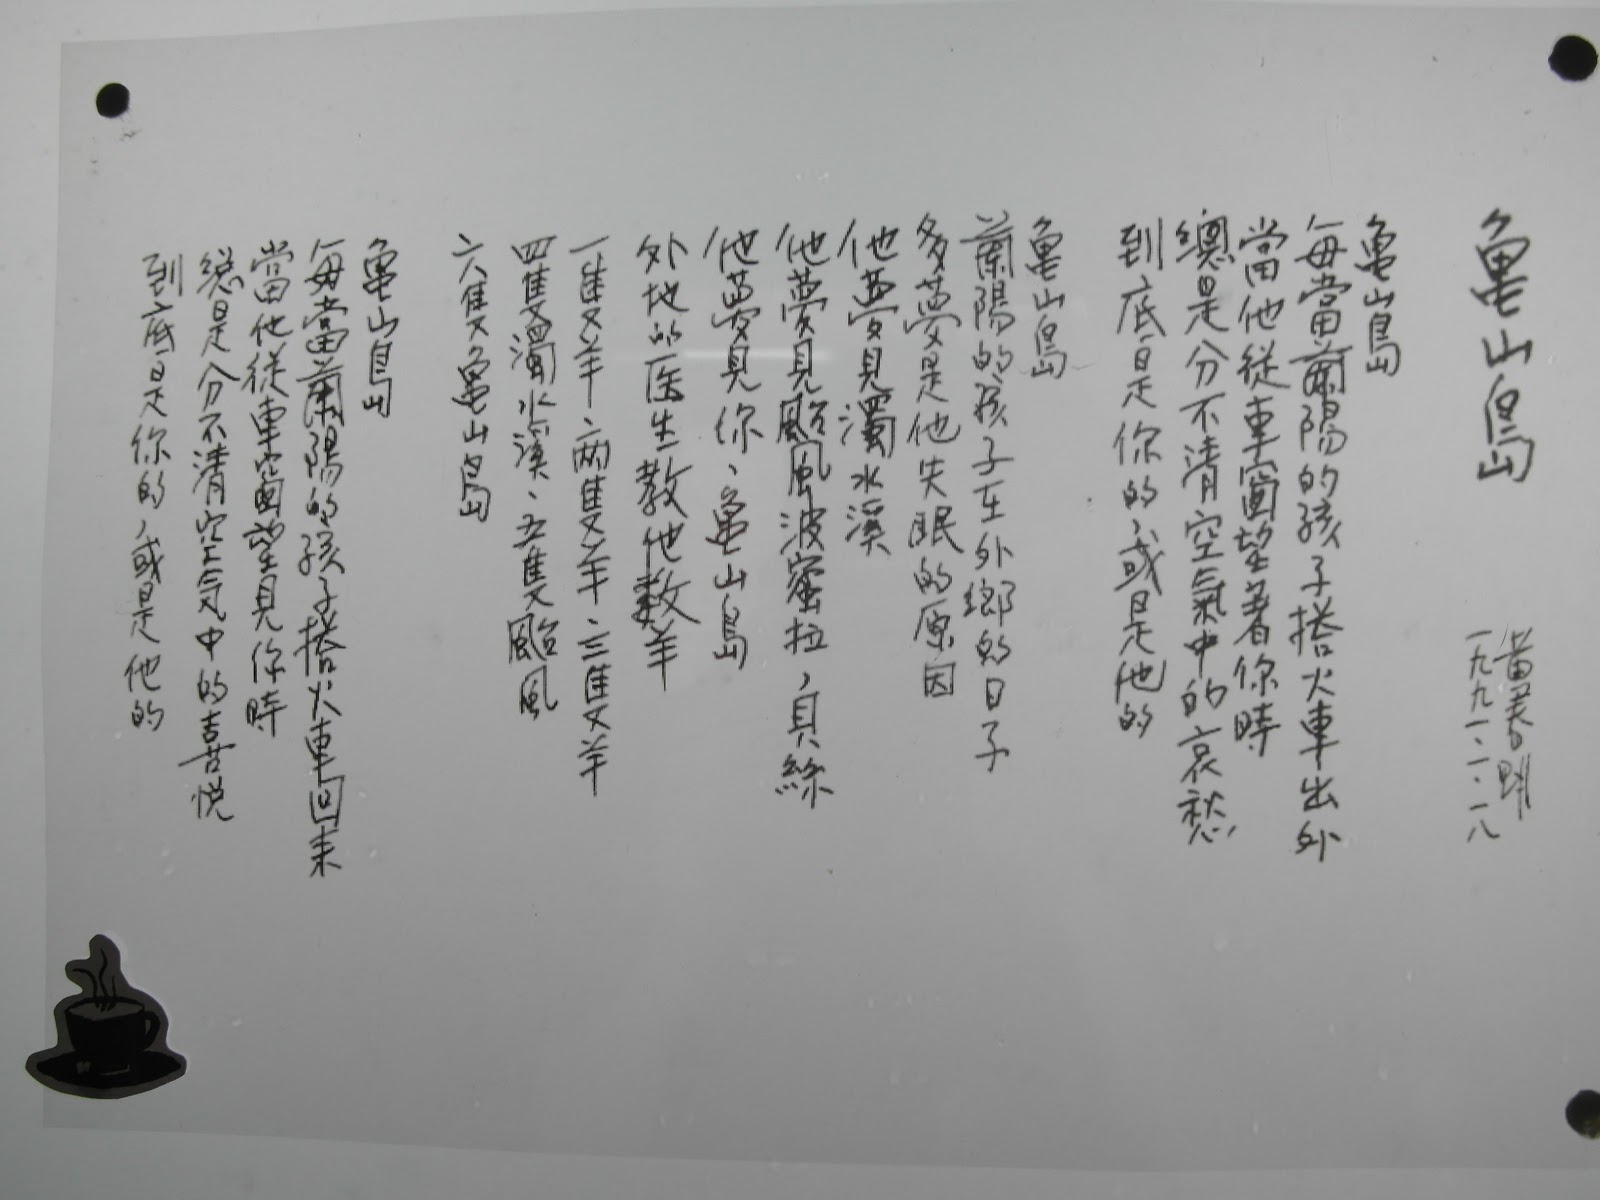 龜山島
黃春明
一九九一、一、一八
龜山島
每當蘭陽的孩子搭火車出外
當他從車窗望着你時
總是分不清空氣中的哀愁
到底是你的，或是他的
龜山島
蘭陽的孩子在外鄉的日子
多夢是他失眠的原因
他夢見濁水溪
他夢見颱風波蜜拉，貝絲
他夢見你，龜山島
外地的医生教他數羊
一隻羊，两隻羊，三隻羊
四隻濁水溪，五隻颱風
六隻龜山島
龜山島
每當蘭陽的孩子搭火車回来
當他從車窗望見你時
総是分不清空気中的喜悅
到底是你的，或是他的